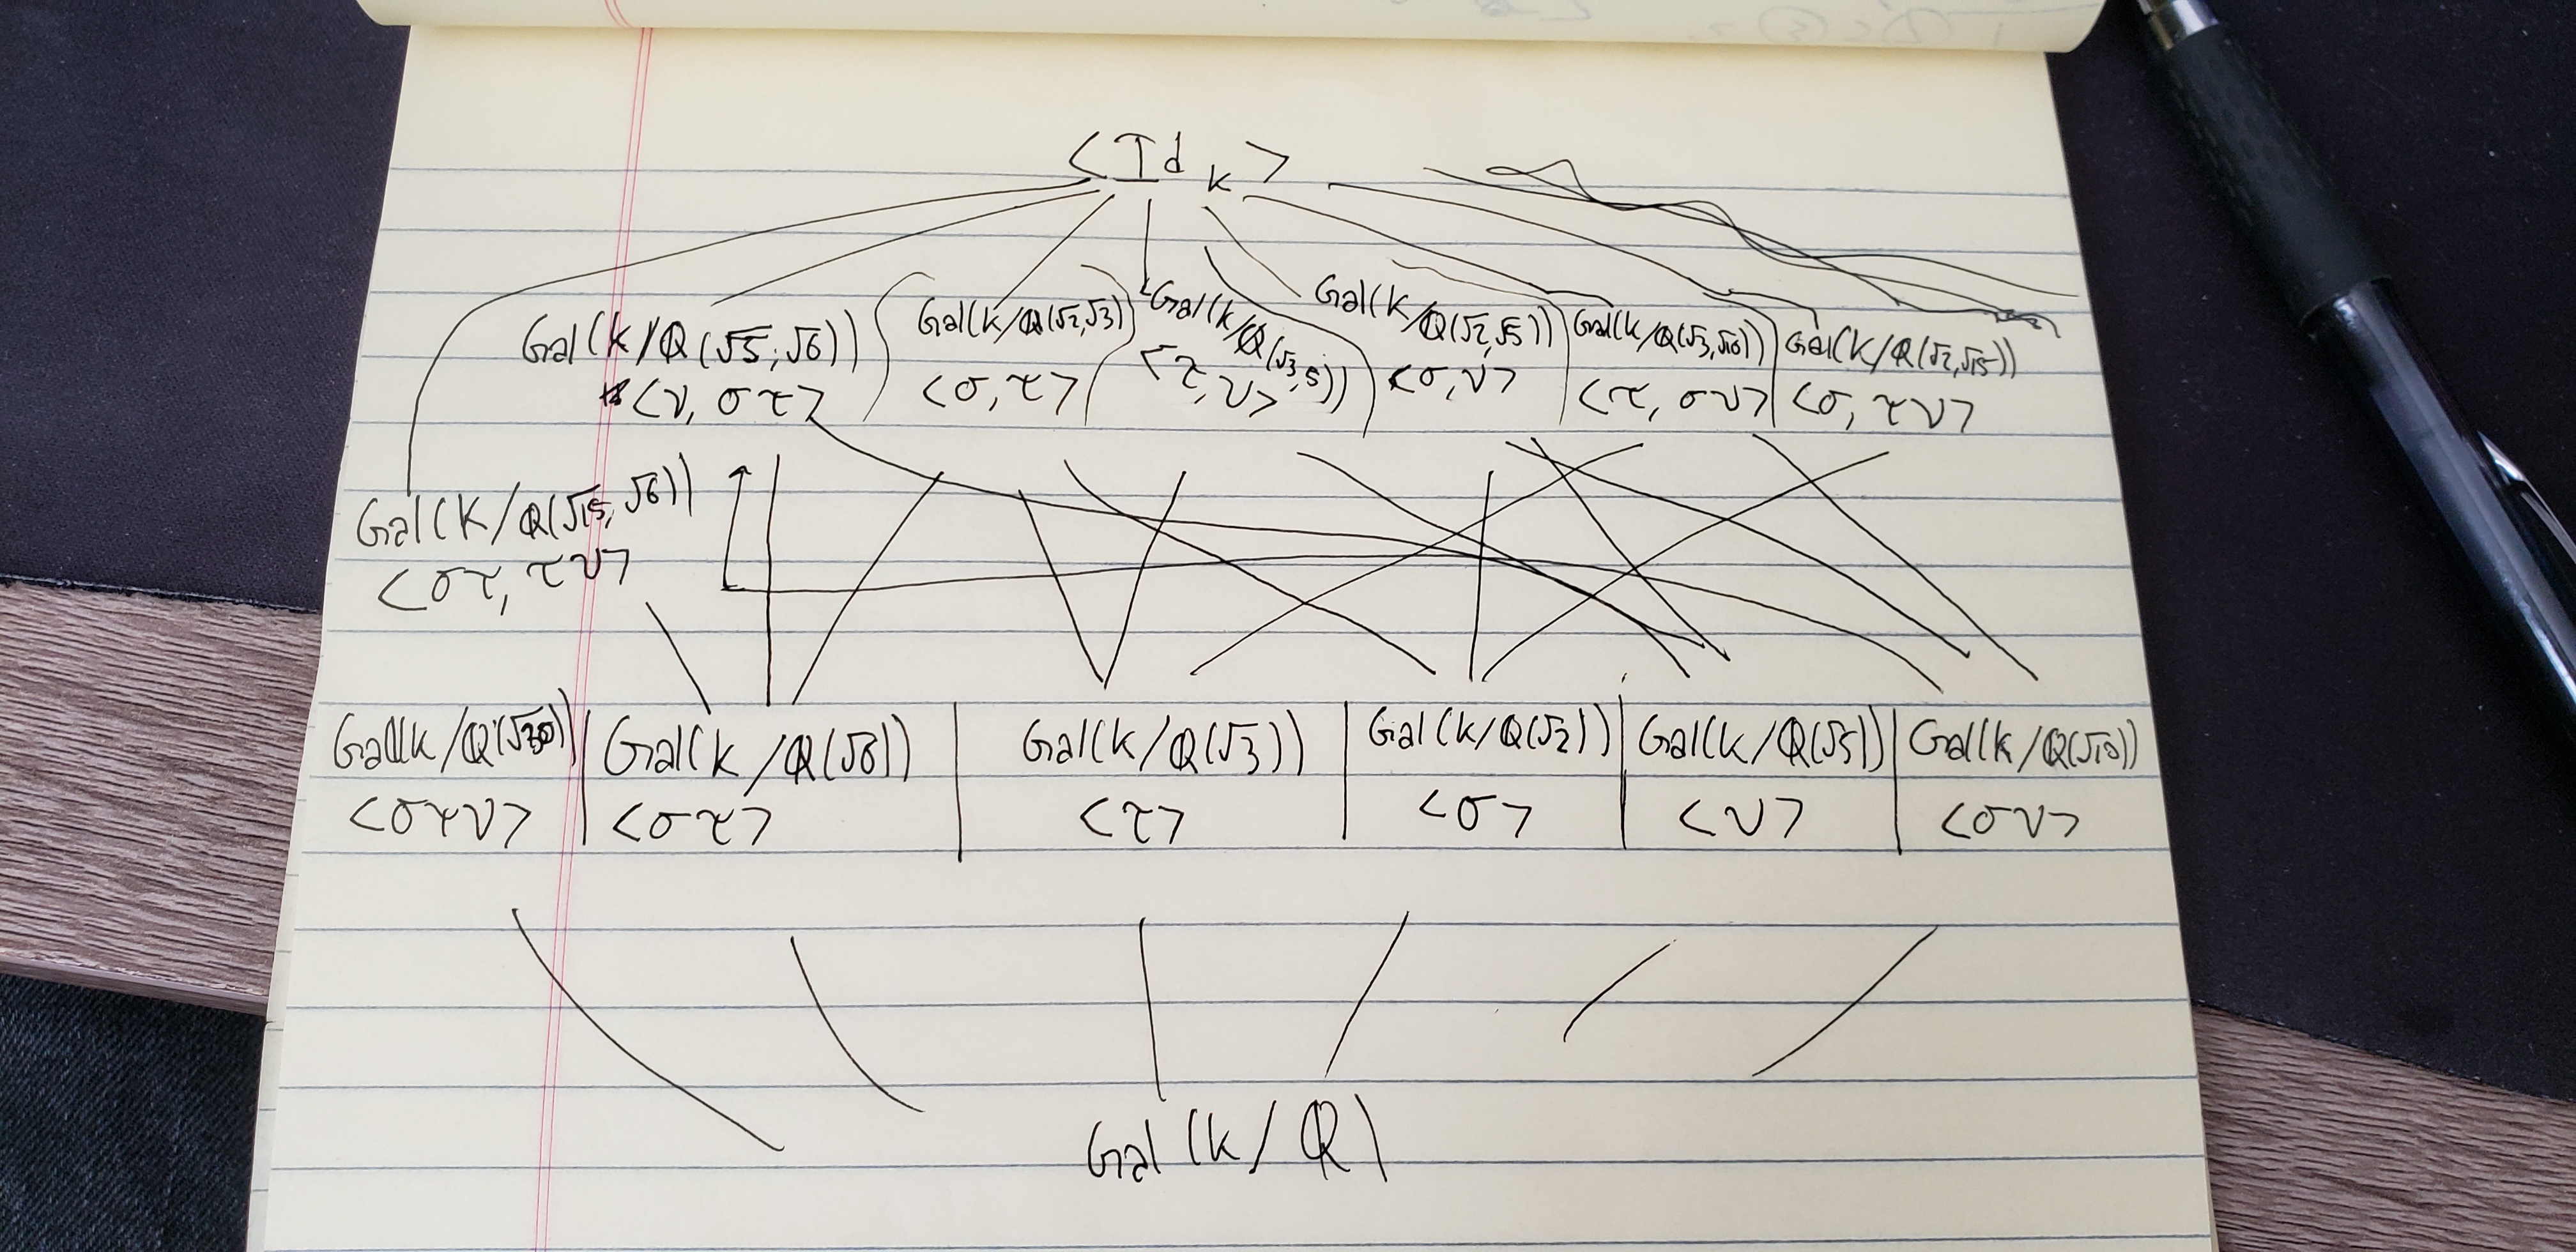 <Id_K>
Gal(K/ℚ(√5, √6))
<ν, στ>
Gal(K/ℚ(√2,√3))
<σ, τ>
Gal(K/ℚ(√3,5))
<τ, ν>
Gal(K/ℚ(√2,√5))
<σ, ν>
Gal(K/ℚ(√3,√10))
<τ, σν>
Gal(K/ℚ(√2,√15))
<σ, τν>
Gal(K/ℚ(√15, √6))
<στ, τν>
Gal(K/ℚ(√30))
<στν>
Gal(K/ℚ(√6))
<στ>
Gal(K/ℚ(√3))
<τ>
Gal(K/ℚ(√2))
<σ>
Gal(K/ℚ(√5))
<ν>
Gal(K/ℚ(√10))
<σν>
Gal(K/ℚ)